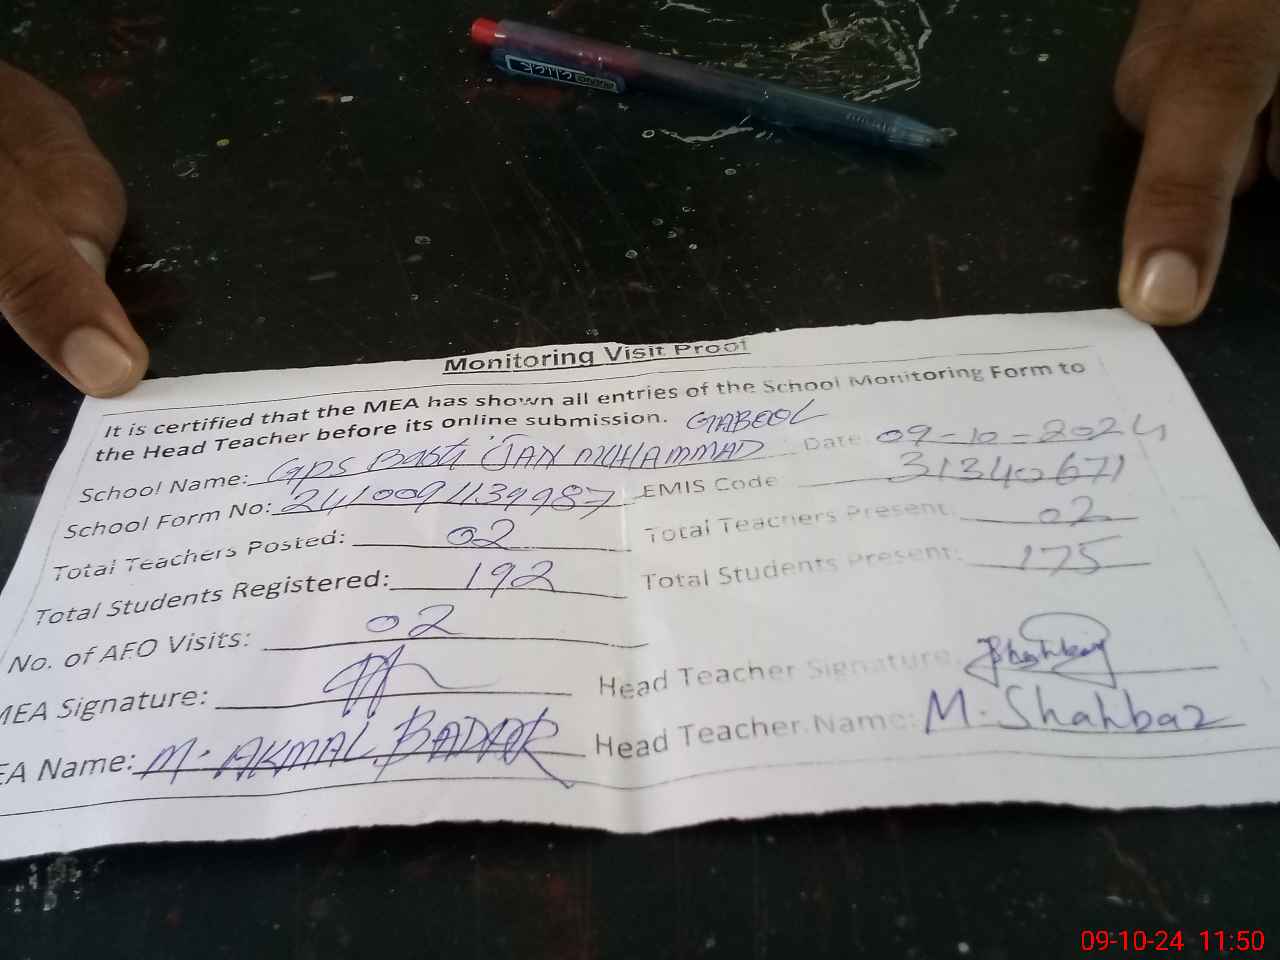 CLICK
Monitoring Visit Proof
It is certified that the MEA has shown all entries of the School Monitoring Form to
the Head Teacher before its online submission. GABOOL
School Name: GPS Basti JAN MUHAMMAD Date: 09-10-2024
School Form No: EMIS Code: 31340671
Total Teachers Posted: 02 Total Teachers Present: 02
Total Students Registered: 192 Total Students Present: 175
No. of AEO Visits: 02
MEA Signature: Head Teacher Signature: Shahbaz
EA Name: M. AKMAL Head Teacher Name: M. Shahbaz
09-10-24 11:50